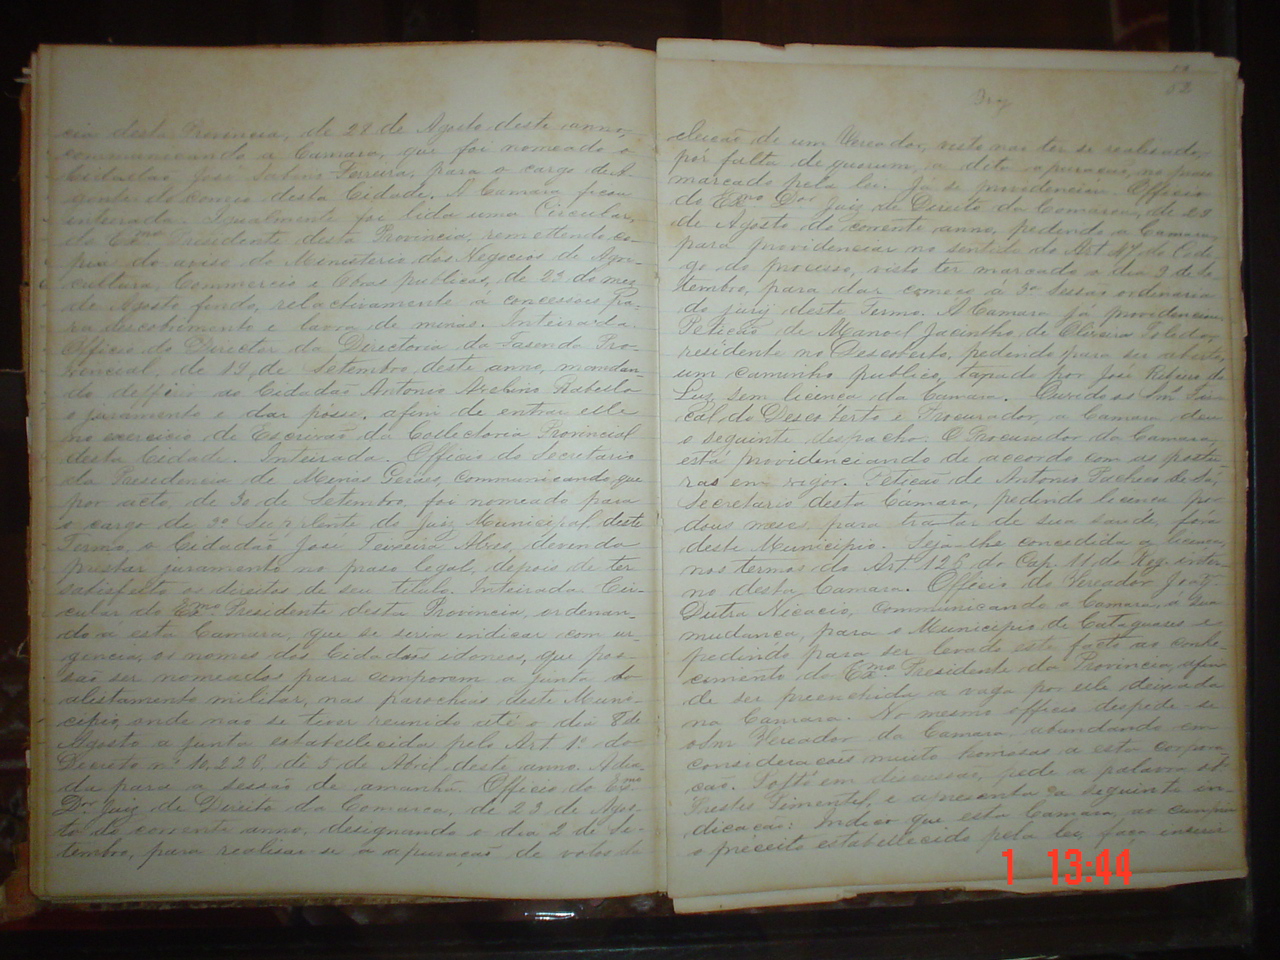 cia desta Provincia, de 28 de Agosto deste anno,
communicando a Camara, que foi nomeado o
Cidadão José Sabino Ferreira, para o cargo de A-
gente do correio desta Cidade. A Camara ficou
inteirada. Igualmente foi lida uma Circular,
do Exmo Presidente desta Provincia, remettendo co-
pia do aviso do Ministerio dos Negocios de Agri-
cultura, Commercio e Obras publicas, de 23 do mez
de Agosto findo, relactivamente a concessões pa-
ra descobrimento e lavra de minas. Inteirada.
Officio do Director da Directoria da Fasenda Pro-
vincial, de 12, de Setembro deste anno, mandan
do defferir ao Cidadão Antonio Avelino Rabello
o juramento e dar posse, afim de entrar elle
no exercicio de Escrivão da Collectoria Provincial
desta Cidade. Inteirada. Officio do Secretario
da Presidencia de Minas Geraes, communicando, que
por acto, de 30 de Setembro, foi nomeado para
o cargo de 3º Supplente do Juiz Municipal deste
Termo, o Cidadão José Teixeira Alves, devendo
prestar juramento no praso legal, depois de ter
satisfeito os direitos de seu titulo. Inteirada. Cir-
cular do Exmo Presidente desta Provincia, ordenan-
do a esta Camara, que se seria indicar com ur-
gencia, os nomes dos Cidadãos idoneos, que pos-
são ser nomeados para comporem a junta do
alistamento militar, nas parochias deste Muni-
cipio, onde não se tiver reunido até o dia 8 de
Agosto a junta estabellecida pelo Art 1º do
Decreto nº 10,226, de 5 de Abril deste anno. Adia-
da para a sessão de amanhã. Officio do Exmo
Dr Juiz de Direito da Comarca, de 23 de Agos-
to do corrente anno, designando o dia 2 de Se-
tembro, para realisar-se a apuração de votos da
52
eleição de um Vereador, visto não ter se realisado,
por falta de quorum, a dita apuração, no praso
marcado pela lei. Já se providenciou. Officio
do Exmo Dor Juiz de Direito da Comarca, de 28
de Agosto do corrente anno, pedindo a Camara
para providenciar no sentido do Art 47 do Codi-
go do processo, visto ter marcado o dia 9 de Se-
tembro, para dar começo á 3ª sessão ordinaria
do jury deste Termo. A Camara já providenciou.
Petição de Manoel Jacintho de Oliveira Toledo,
residente no Descoberto, pedindo para ser aberto,
um caminho publico, tapado por José Ribeiro da
Luz, sem licença da Camara. Ouvidos os Snr Fis-
cal do Descoberto e Procurador, a Camara deu
o seguinte despacho. O Procurador da Camara,
está providenciando de accordo com as postu-
ras em vigor. Petição de Antonio Pacheco de Sá,
Secretario desta Camara, pedindo licença por
dous meses, para tractar de sua saude, fora
deste Municipio. Seja-lhe concedida a licença,
nos termos do Art 126 do Cap. 11 do Reg. inter-
no desta Camara. Officio do Vereador João
Dutra Nicacio, communicando a Camara, á sua
mudança, para o Municipio de Cataguases e
pedindo para ser levado este facto ao conhe-
cimento do Exmo Presidente da Provincia, afim
de ser preenchida a vaga por elle deixada
na Camara. No mesmo officio despede-se
o Snr Vereador da Camara, abundando em
considerações muito honrosas a esta corpora-
ção. Posto em discussão, pede a palavra o Sr
Prestes Pimentel, e apresenta a seguinte in-
dicação: Indico que esta Camara, ao cumprir
o preceito estabellecido pela lei, faça inserir
1 13:44